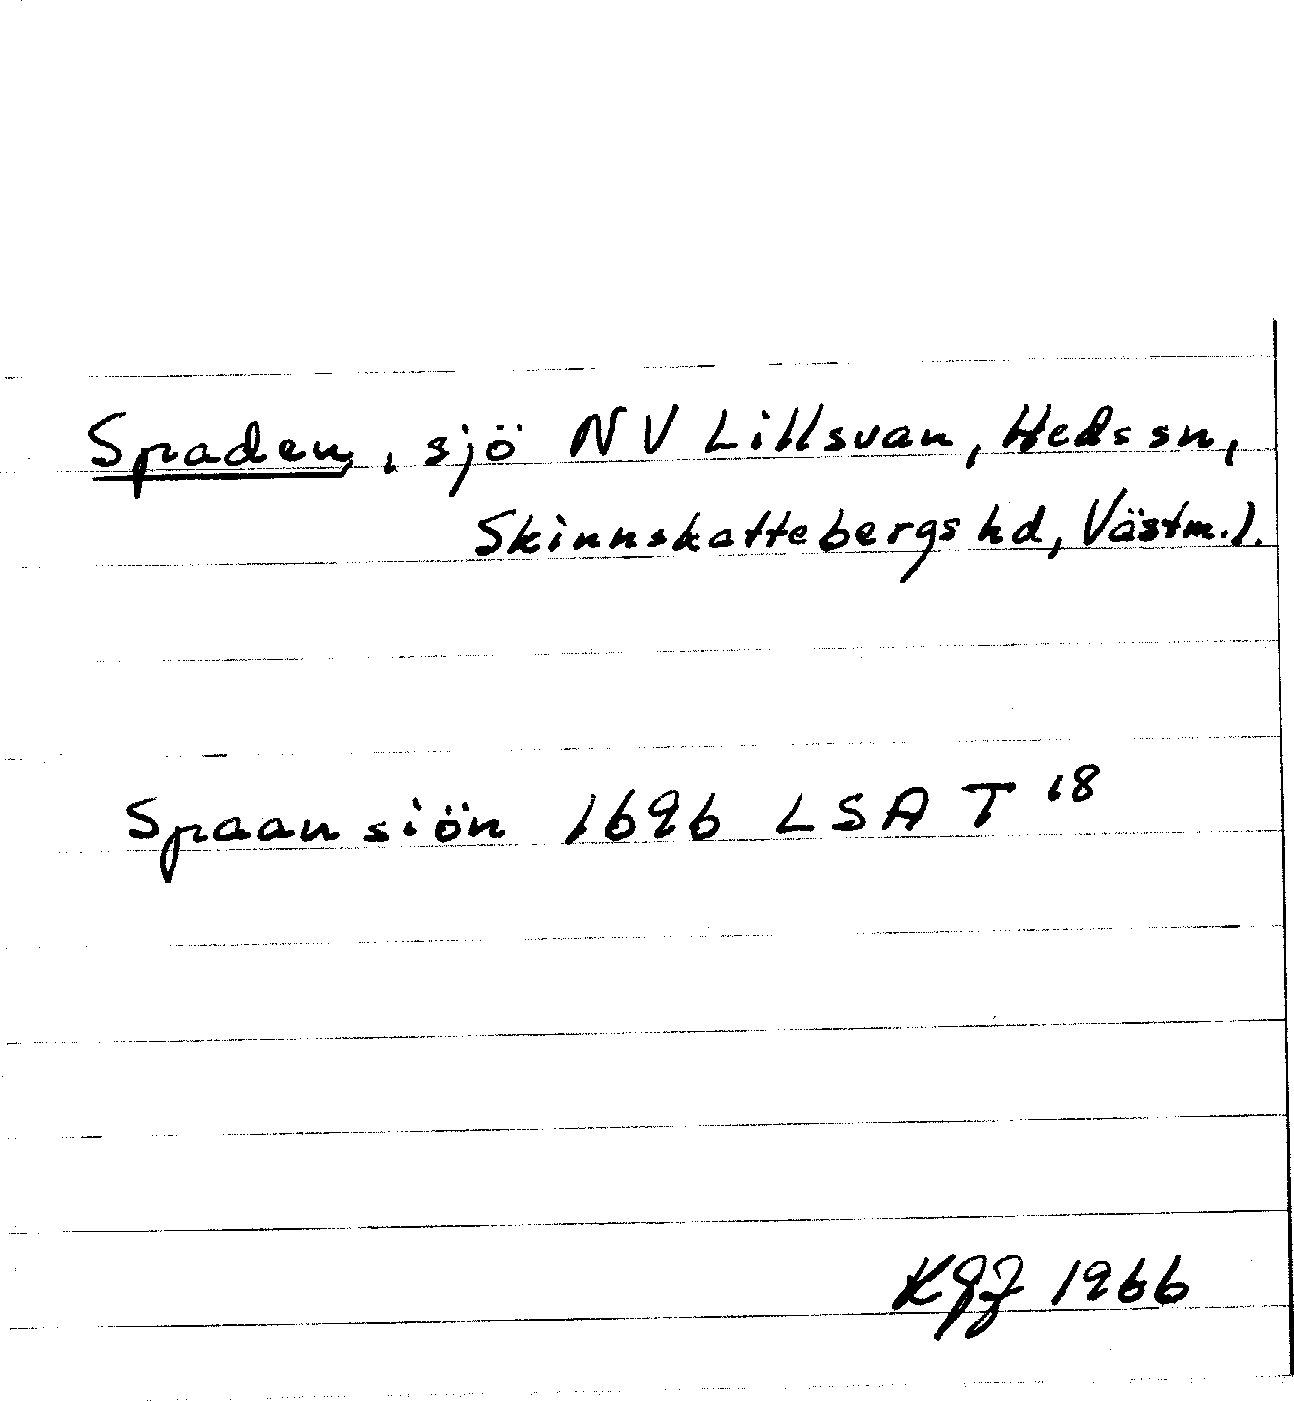 Spaden, sjö NV Lillsvan, Heds sn,
Skinnskattebergs hd, Västm. l.
Spaansiön 1696 LSA T 18
KGJ 1966